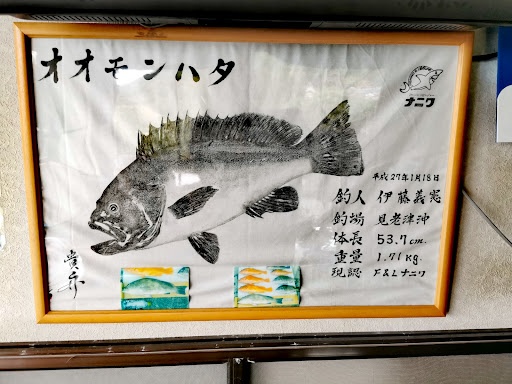 オオモンハタ
ナニワ
平成27年1月18日
釣人 伊藤義憲
釣場 見老津沖
体長 53.7cm.
重量 1.71kg.
現認 F&Lナニワ